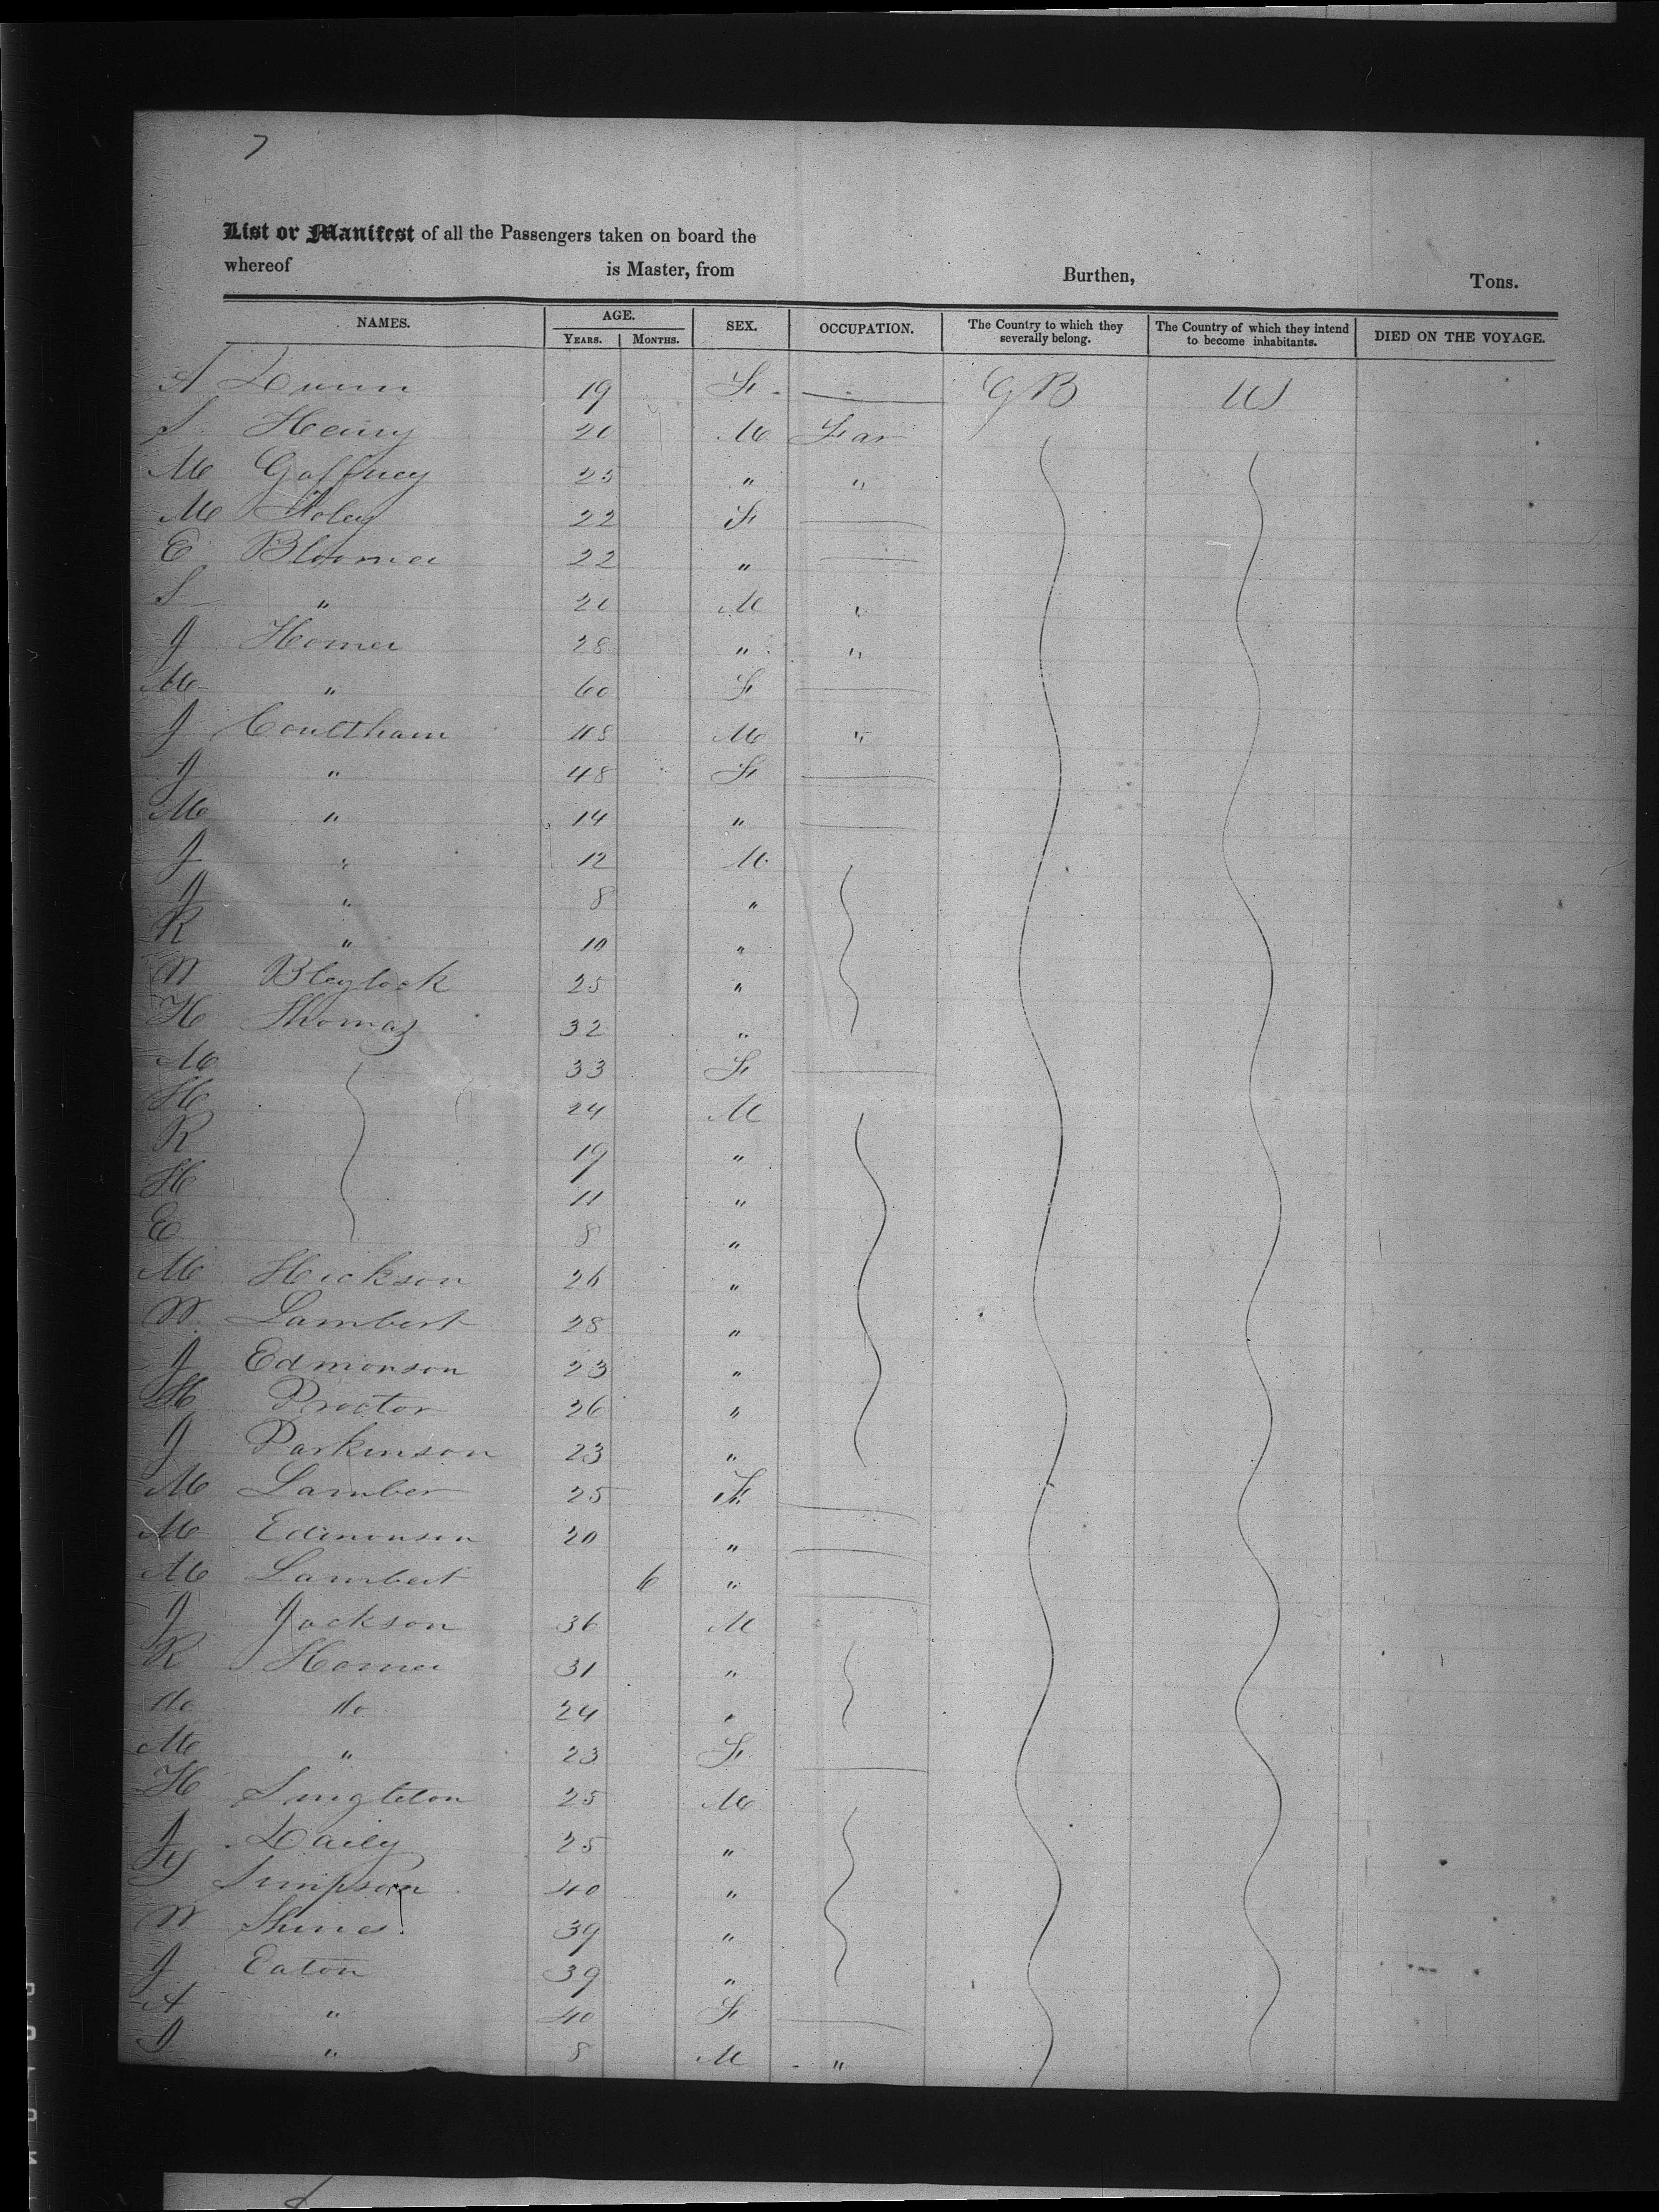 7
List or Manifest of all the Passengers taken on board the
whereof is Master, from Burthen, Tons.
NAMES. AGE. SEX. OCCUPATION. The Country to which they severally belong. The Country of which they intend to become inhabitants. DIED ON THE VOYAGE.
YEARS. MONTHS.
A Dunn 19 F — GB US
S Heany 20 M Far
M Gaffney 25 " "
M Foley 22 F —
E Bloomer 22 " —
S " 20 M "
J Homer 28 " "
M " 60 F —
J Coultham 48 M "
J " 48 F —
M " 14 " —
J " 12 M
J " 8 "
R " 10 "
W Bleylock 25 "
H Thomas 32 "
M 33 F —
H 24 M
R 19 "
H 11 "
E 8 "
M Hickson 26 "
W Lambert 28 "
J Edmonson 23 "
H Proctor 26 "
J Parkinson 23 "
M Lamber 25 F —
M Edmonson 20 " —
M Lambert 6 " —
J Jackson 36 M
R Homer 31 "
do do 24 "
M " 23 F —
H Singleton 25 M
J Daily 25 "
Simpson 40 "
W 39 "
J Eaton 39 "
A " 40 F —
J " 8 M "